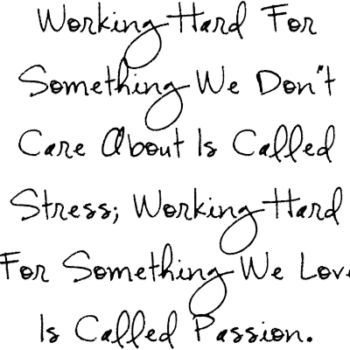 Working Hard For
Something We Don't
Care About Is Called
Stress; Working Hard
For Something We Love
Is Called Passion.